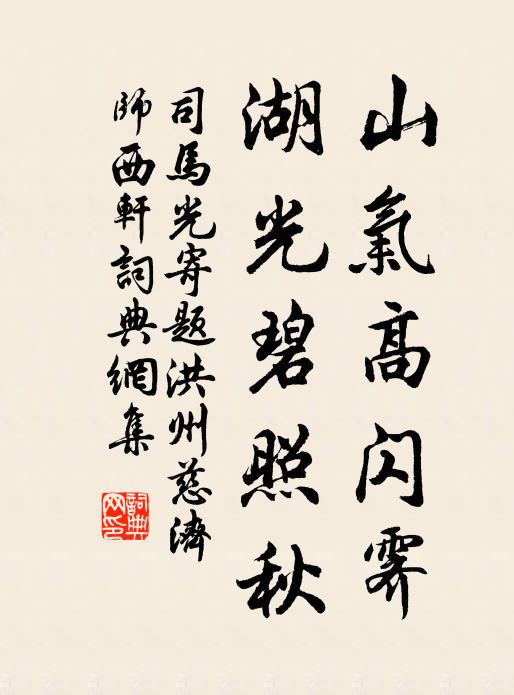 山氣高閃霽
湖光碧照秋
司馬光寄題洪州慈濟
師西軒詞典網集
詞典網印